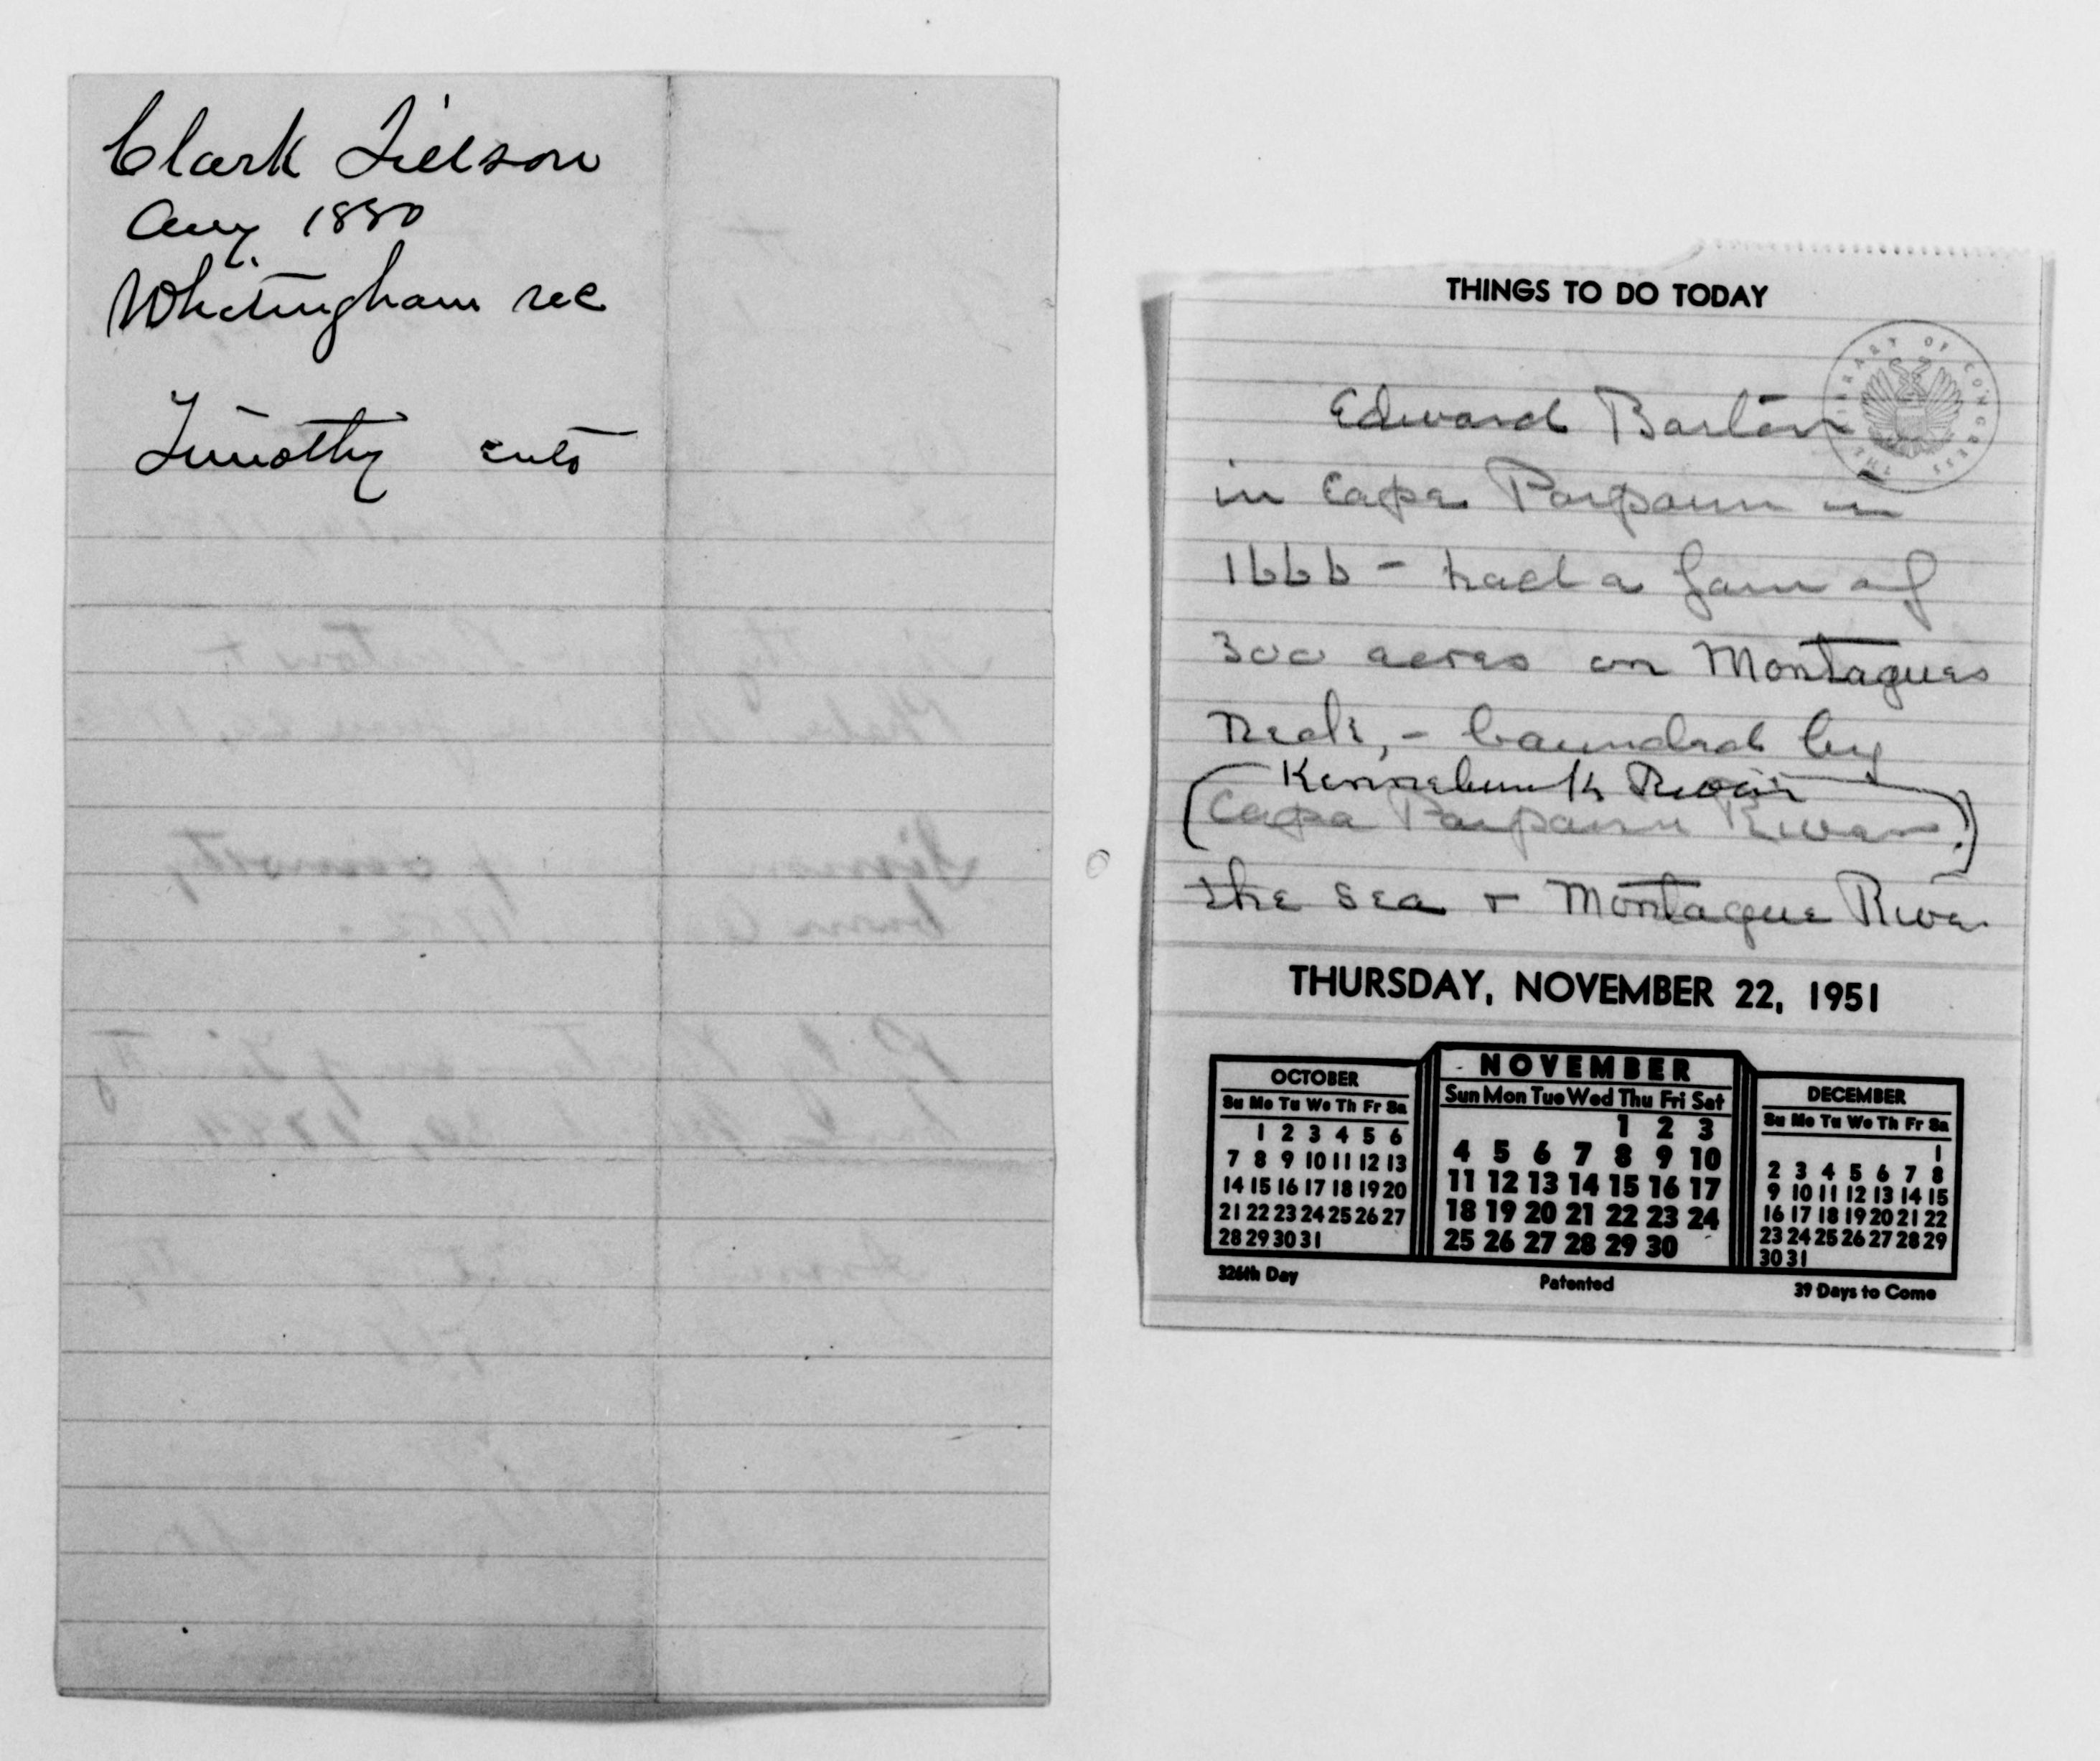 Clark Jillson
Aug. 1880
Whitingham rec
Timothy
THINGS TO DO TODAY
THE LIBRARY OF CONGRESS
Edward Barton
in Cape Porpoise in
1666 - had a farm of
300 acres on Montagues
Neck, - bounded by
Kennebunk River
(Cape Porpoise River)
the sea + Montague River
THURSDAY, NOVEMBER 22, 1951
OCTOBER
Su Mo Tu We Th Fr Sa
1 2 3 4 5 6
7 8 9 10 11 12 13
14 15 16 17 18 19 20
21 22 23 24 25 26 27
28 29 30 31
326th Day
NOVEMBER
Sun Mon Tue Wed Thu Fri Sat
1 2 3
4 5 6 7 8 9 10
11 12 13 14 15 16 17
18 19 20 21 22 23 24
25 26 27 28 29 30
Patented
DECEMBER
Su Mo Tu We Th Fr Sa
1
2 3 4 5 6 7 8
9 10 11 12 13 14 15
16 17 18 19 20 21 22
23 24 25 26 27 28 29
30 31
39 Days to Come